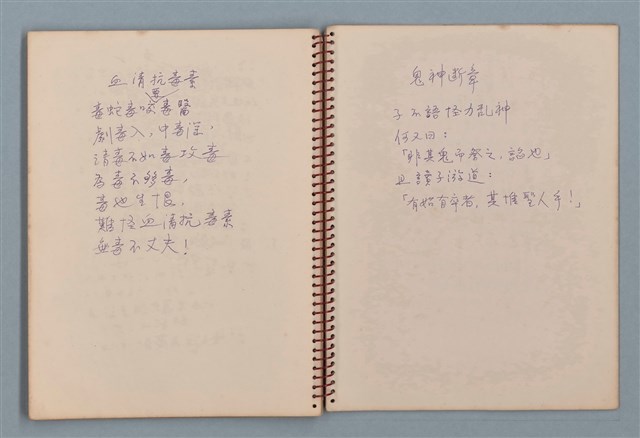 血清抗毒素
毒蛇毒咬毒醫
劇毒入,中毒深,
清毒不如毒攻毒
為毒不夠毒,
毒也生恨,
難怪血清抗毒素
無毒不丈夫!
鬼神断章
子不語怪力乱神
何又曰:
「非其鬼而祭之,諂也」
且讀子游道:
「有始有卒者,其惟聖人乎!」